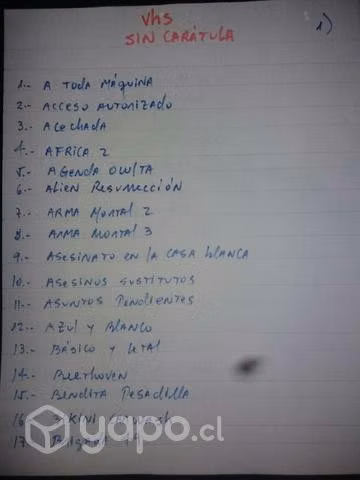 vhs
SIN CARÁTULA
1)
1.- A TODA MÁQUINA
2.- ACCESO AUTORIZADO
3.- ACECHADA
4.- AFRICA 2
5.- AGENDA OCULTA
6.- ALIEN RESURRECCIÓN
7.- ARMA MORTAL 2
8.- ARMA MORTAL 3
9.- ASESINATO EN LA CASA blANCA
10.- ASESINOS SUSTITUTOS
11.- ASUNTOS PENDIENTES
12.- AZUL Y BLANCO
13.- BÁSICO Y LETAL
14.- BEETHOVEN
15.- BENDITA PESADILLA
16.- BIKINI
17.-
yapo.cl